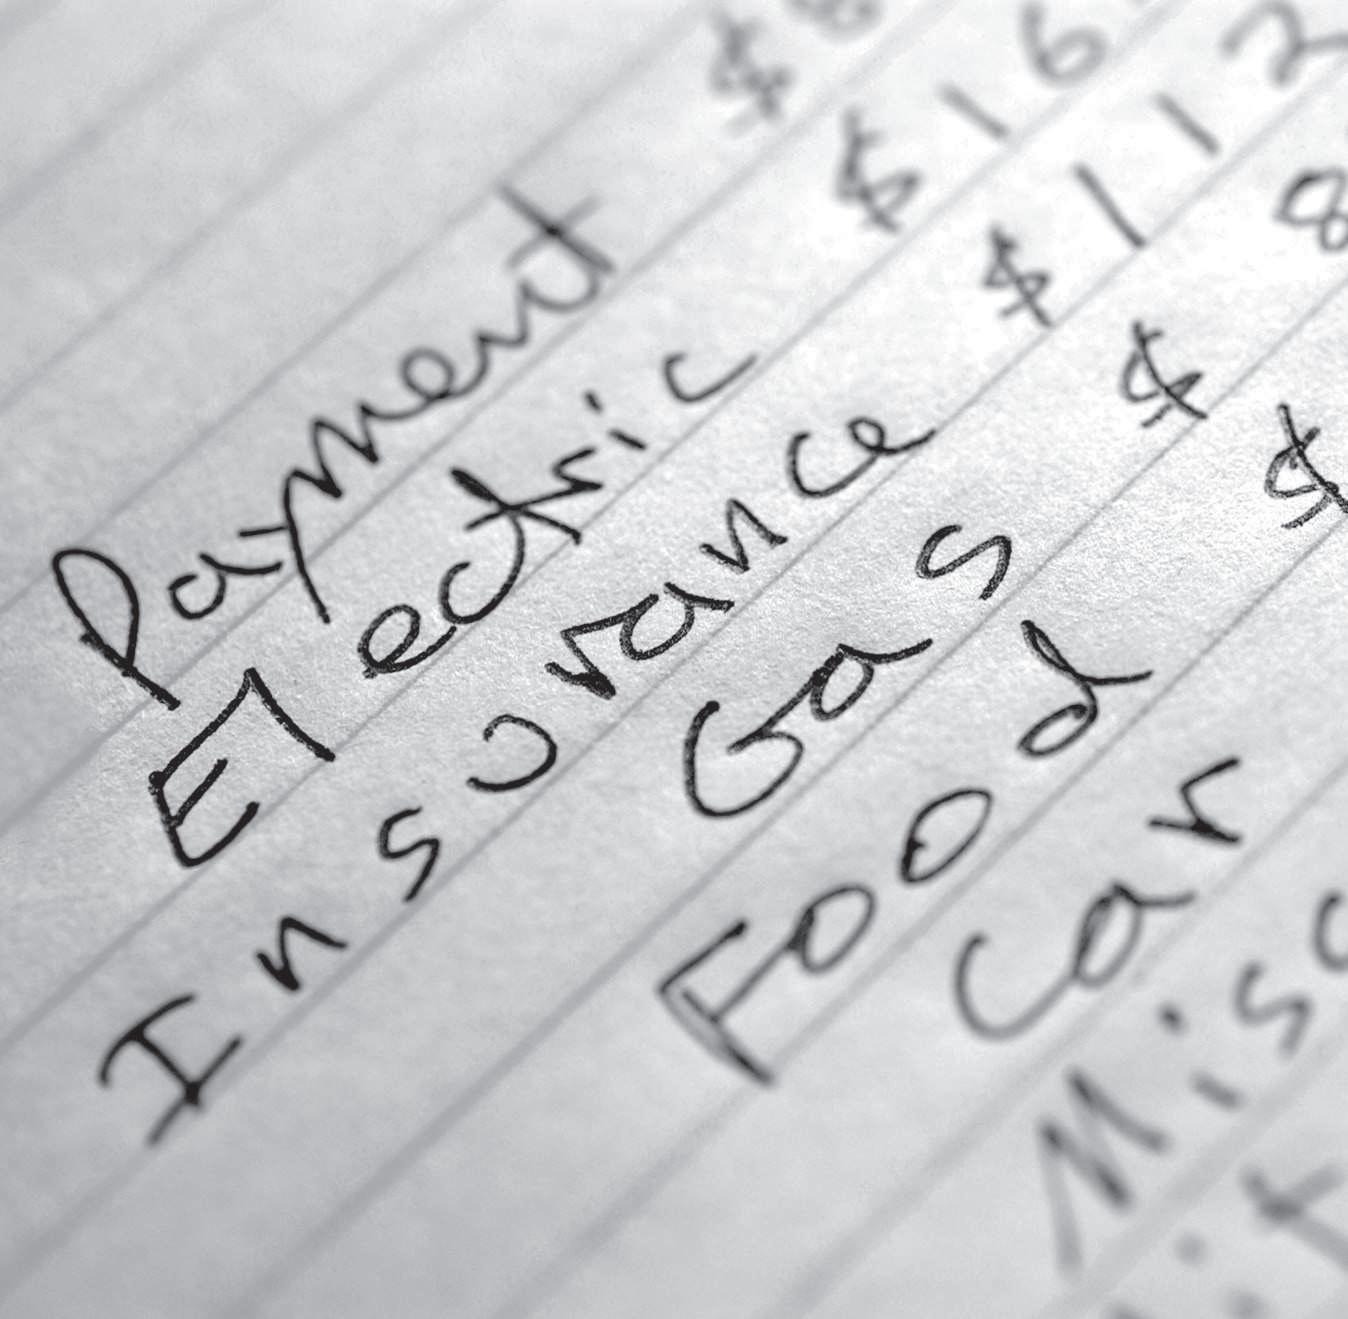 Payment $8
Electric $16
Insurance $112
Gas $8
Food $
Car
Misc